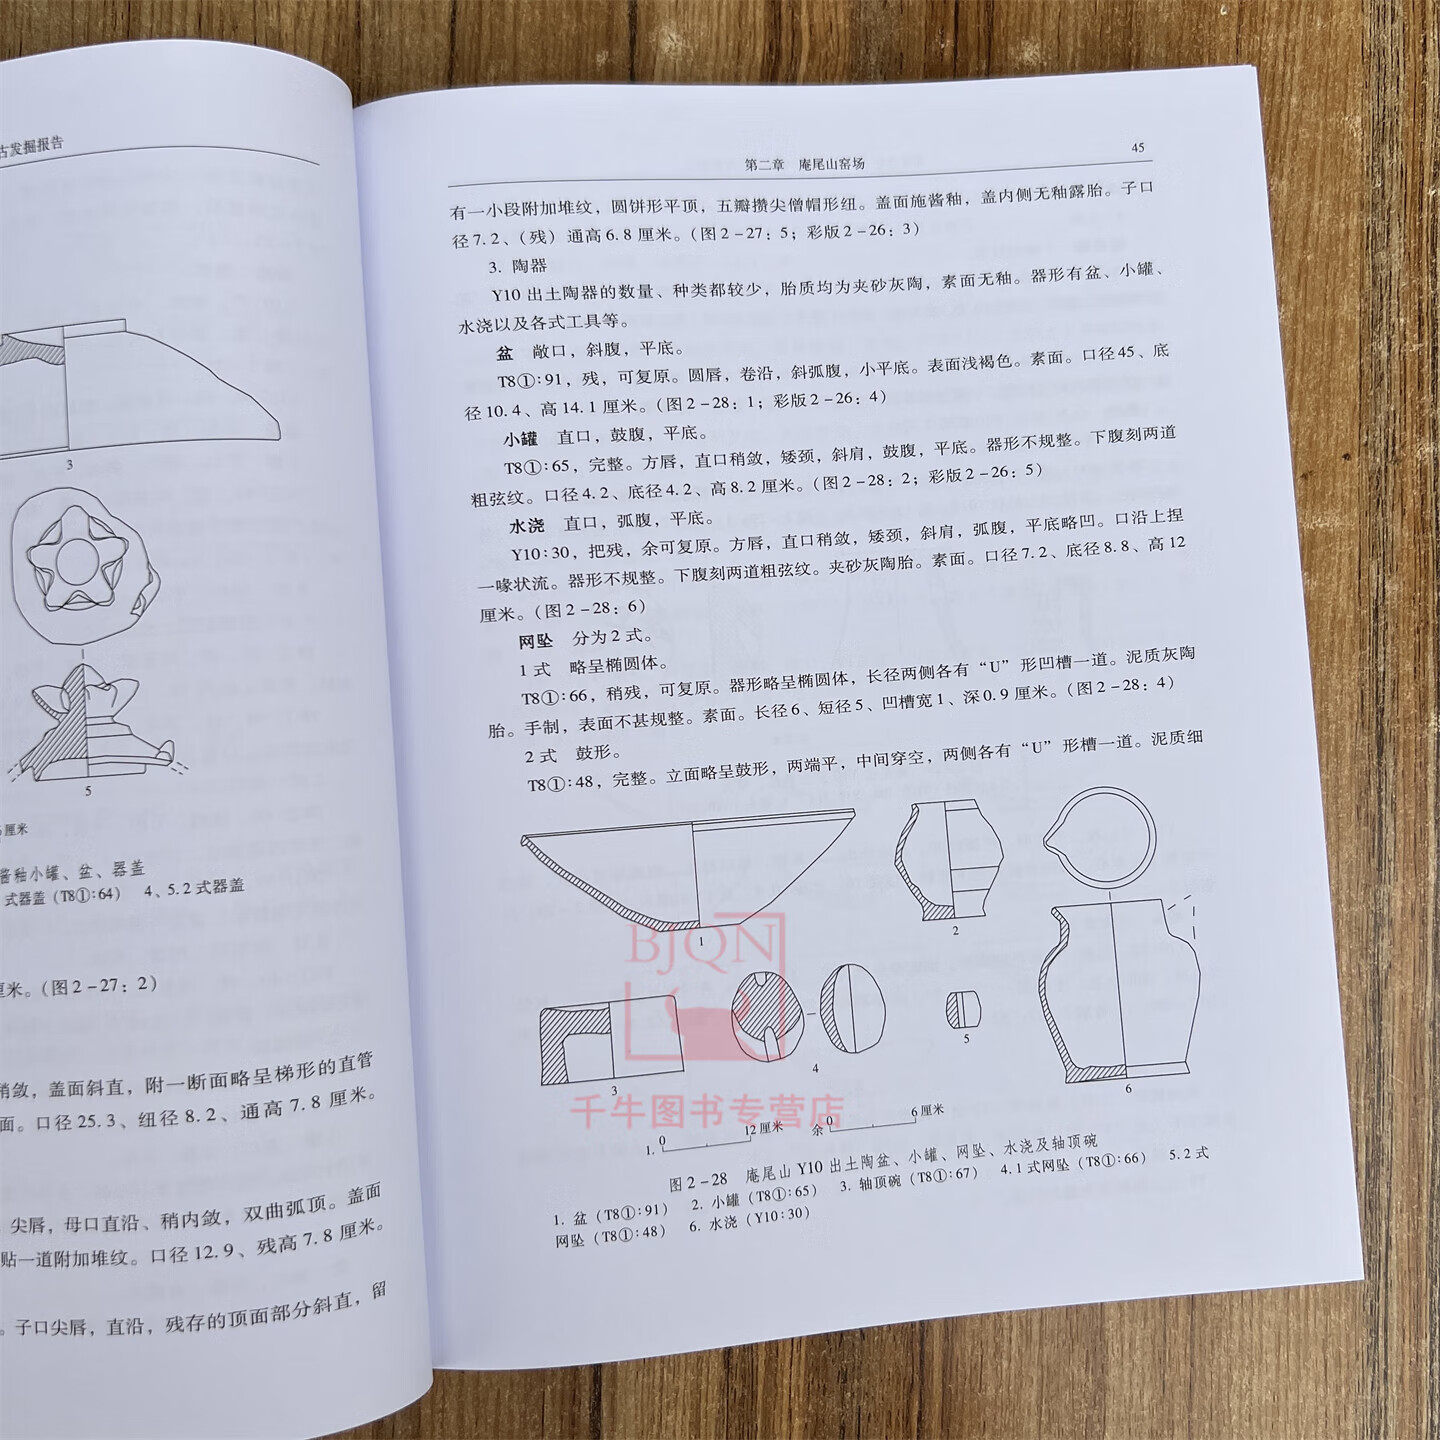 古发掘报告
3
5
厘米
酱釉小罐、盆、器盖
式器盖（T8①:64） 4、5.2 式器盖
厘米。（图2－27：2）
稍敛，盖面斜直，附一断面略呈梯形的直管
面。口径25.3、纽径8.2、通高7.8厘米。
尖唇，母口直沿、稍内敛，双曲弧顶。盖面
贴一道附加堆纹。口径12.9、残高7.8厘米。
。子口尖唇，直沿，残存的顶面部分斜直，留
第二章 庵尾山窑场
45
有一小段附加堆纹，圆饼形平顶，五瓣攒尖僧帽形纽。盖面施酱釉，盖内侧无釉露胎。子口
径7.2、（残）通高6.8厘米。（图2－27：5；彩版2－26：3）
3. 陶器
Y10出土陶器的数量、种类都较少，胎质均为夹砂灰陶，素面无釉。器形有盆、小罐、
水浇以及各式工具等。
盆 敞口，斜腹，平底。
T8①:91，残，可复原。圆唇，卷沿，斜弧腹，小平底。表面浅褐色。素面。口径45、底
径10.4、高14.1厘米。（图2－28：1；彩版2－26：4）
小罐 直口，鼓腹，平底。
T8①:65，完整。方唇，直口稍敛，矮颈，斜肩，鼓腹，平底。器形不规整。下腹刻两道
粗弦纹。口径4.2、底径4.2、高8.2厘米。（图2－28：2；彩版2－26：5）
水浇 直口，弧腹，平底。
Y10:30，把残，余可复原。方唇，直口稍敛，矮颈，斜肩，弧腹，平底略凹。口沿上捏
一喙状流。器形不规整。下腹刻两道粗弦纹。夹砂灰陶胎。素面。口径7.2、底径8.8、高12
厘米。（图2－28：6）
网坠 分为2式。
1式 略呈椭圆体。
T8①:66，稍残，可复原。器形略呈椭圆体，长径两侧各有“U”形凹槽一道。泥质灰陶
胎。手制，表面不甚规整。素面。长径6、短径5、凹槽宽1、深0.9厘米。（图2－28：4）
2式 鼓形。
T8①:48，完整。立面略呈鼓形，两端平，中间穿空，两侧各有“U”形槽一道。泥质细
1
2
3
4
5
6
BJQN
千牛图书专营店
1. 0 12厘米 余 0 6厘米
图2－28 庵尾山Y10出土陶盆、小罐、网坠、水浇及轴顶碗
1. 盆（T8①:91） 2. 小罐（T8①:65） 3. 轴顶碗（T8①:67） 4.1式网坠（T8①:66） 5.2式
网坠（T8①:48） 6. 水浇（Y10:30）